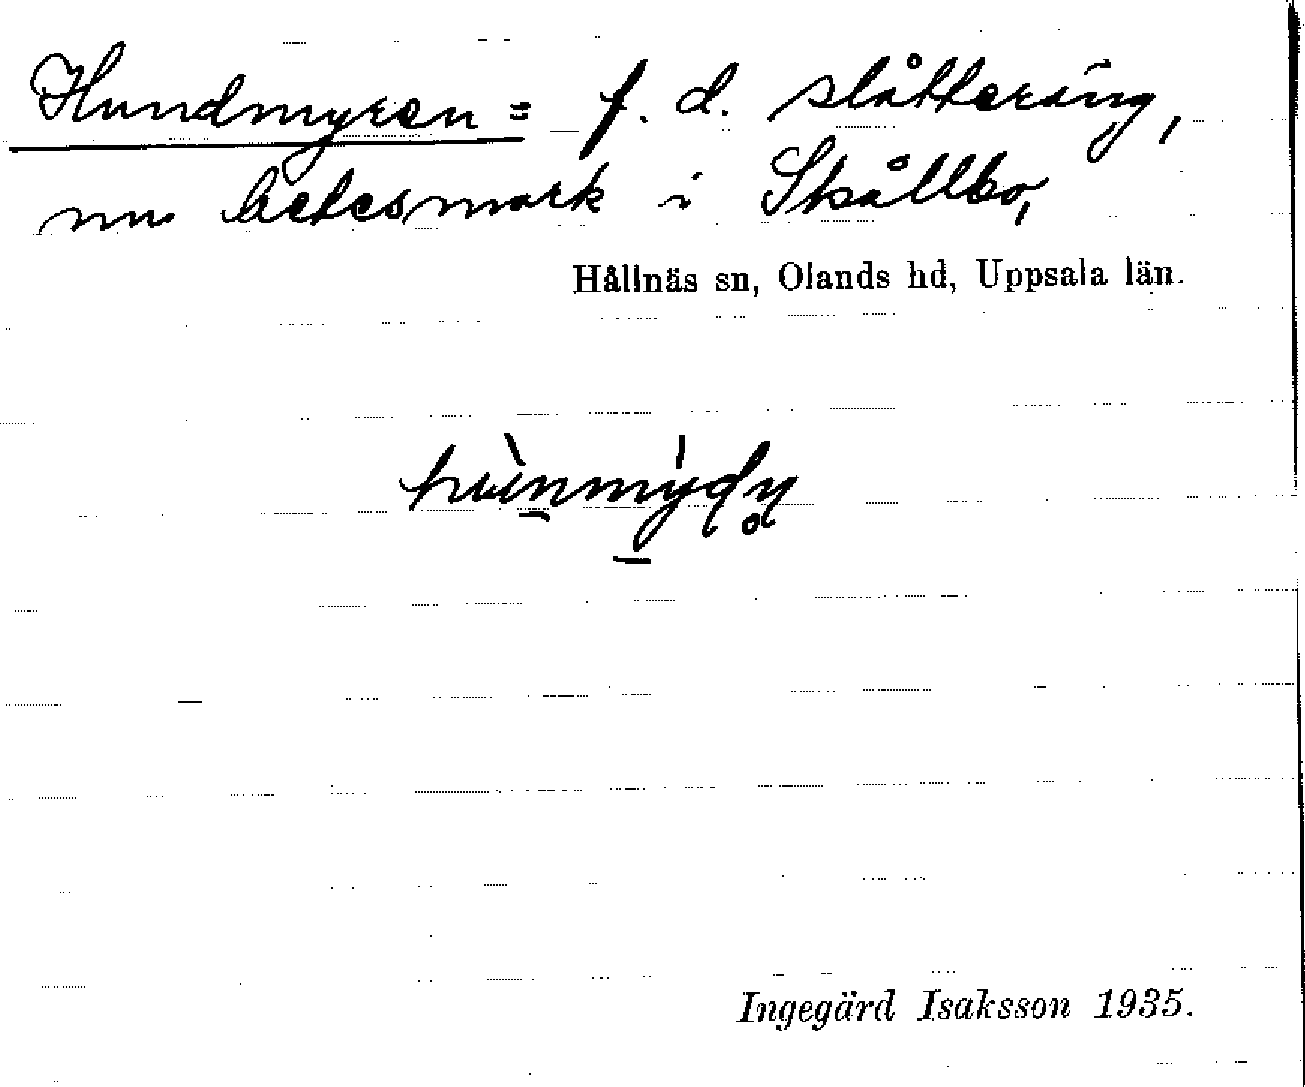 Hundmyren = f. d. slåtteräng,
nu betesmark i Skållbo,
Hållnäs sn, Olands hd, Uppsala län.
Ingegärd Isaksson 1935.